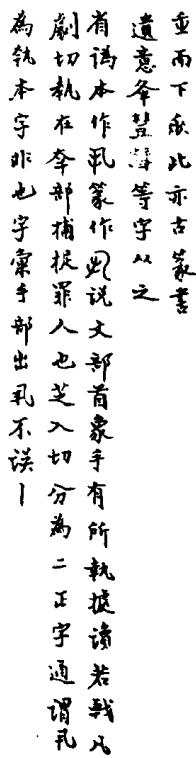 垂而下承此亦古篆書
遺意夆豐彗等字从之
有譌本作丮篆作𠃨说文部首象手有所執據讀若戟凡
劇切執在㚔部捕捉罪人也芝入切分為二正字通謂丮
為執本字非也字彙手部出丮不误丨